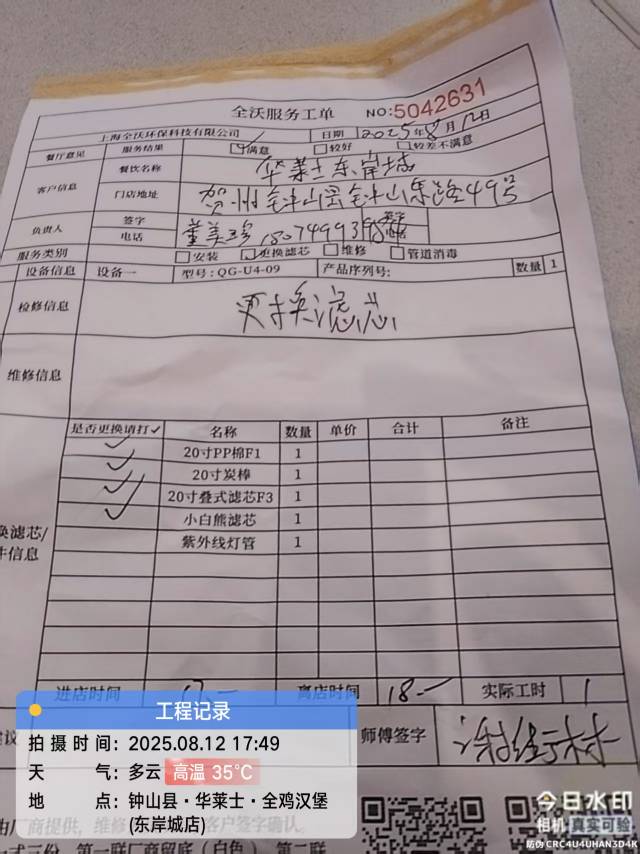 全沃服务工单 NO:5042631
上海全沃环保科技有限公司 日期 2025年8月12日
餐厅意见 服务结果 满意 较好 较差不满意
客户信息 餐饮名称 华莱士东岸城
门店地址 贺州钟山县钟山东路49号
负责人 签字
电话 董美珍
服务类别 安装 更换滤芯 维修 管道消毒
设备信息 设备一 型号:QG-U4-09 产品序列号: 数量 1
检修信息 更换滤芯
维修信息
是否更换请打✓ 名称 数量 单价 合计 备注
✓ 20寸PP棉F1 1
✓ 20寸炭棒 1
✓ 20寸叠式滤芯F3 1
✓ 小白熊滤芯 1
紫外线灯管 1
换滤芯/
件信息
进店时间 17.— 离店时间 18— 实际工时 1
师傅签字
工程记录
拍摄时间:2025.08.12 17:49
天气:多云 高温 35℃
地点:钟山县·华莱士·全鸡汉堡
(东岸城店)
由厂商提供, 客户签字确认.
一式三份, 第一联厂商留底(白色), 第二联
今日水印
相机 真实可验
防伪 CRC4U4UHAN3D4K